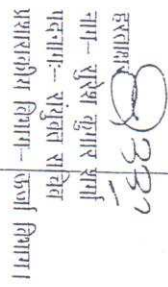 हस्ताक्षर
नाम– सुरेश कुमार शर्मा
पदनामः– संयुक्त सचिव
प्रशासकीय विभाग– ऊर्जा विभाग।